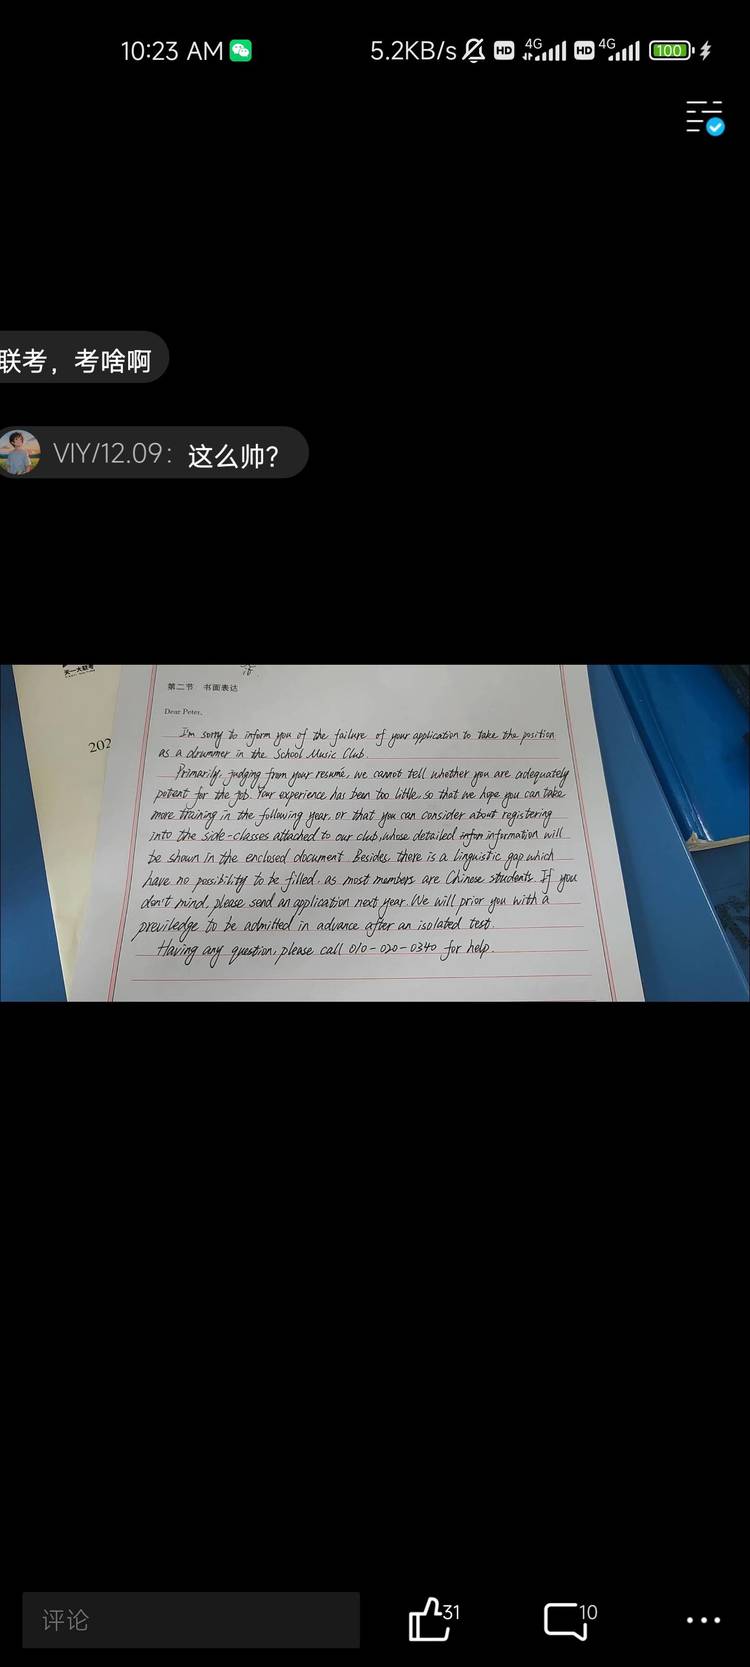 10:23 AM
5.2KB/s
HD
4G
HD
4G
100
联考，考啥啊
VIY/12.09：这么帅？
天一大联考
202
第二节 书面表达
Dear Peter,
I'm sorry to inform you of the failure of your application to take the position
as a drummer in the School Music Club.
Primarily, judging from your resumé, we cannot tell whether you are adequately
potent for the job. Your experience has been too little, so that we hope you can take
more training in the following year, or that you can consider about registering
into the side-classes attached to our club, whose detailed information will
be shown in the enclosed document. Besides, there is a linguistic gap which
have no possibility to be filled, as most members are Chinese students. If you
don't mind, please send an application next year. We will prior you with a
previledge to be admitted in advance after an isolated test.
Having any question, please call 010-020-0340 for help.
评论
31
10